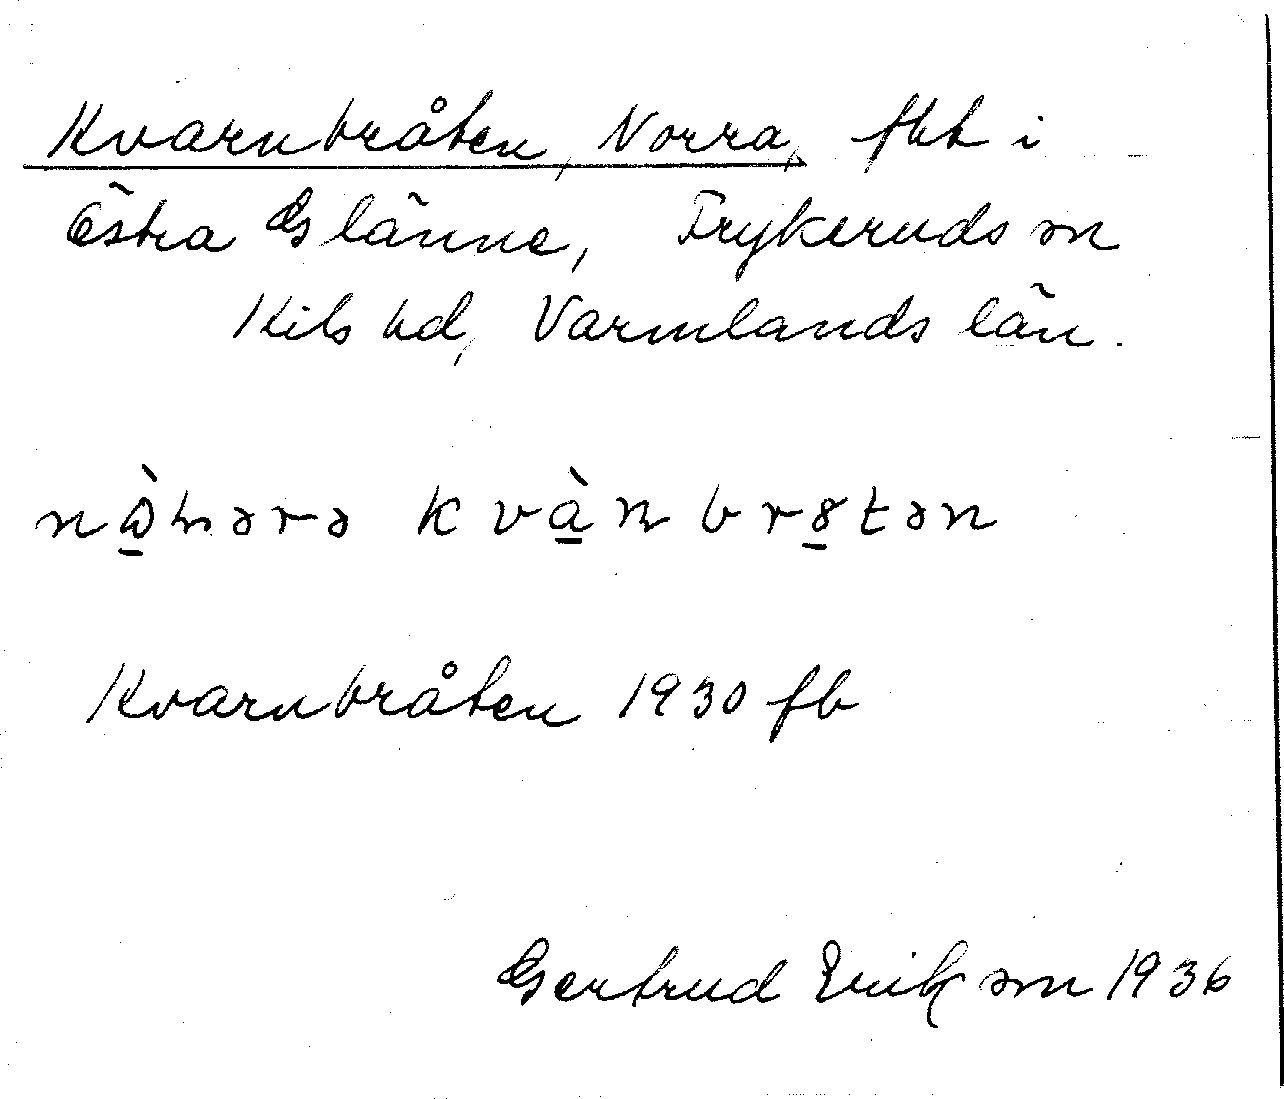 Kvarnbråten, Norra, fbt i
Östra Glänne, Frykeruds sn
Kils hd, Värmlands län.
kvànbrɵtən
Kvarnbråten 1930 fb
Gertrud Erikson 1936